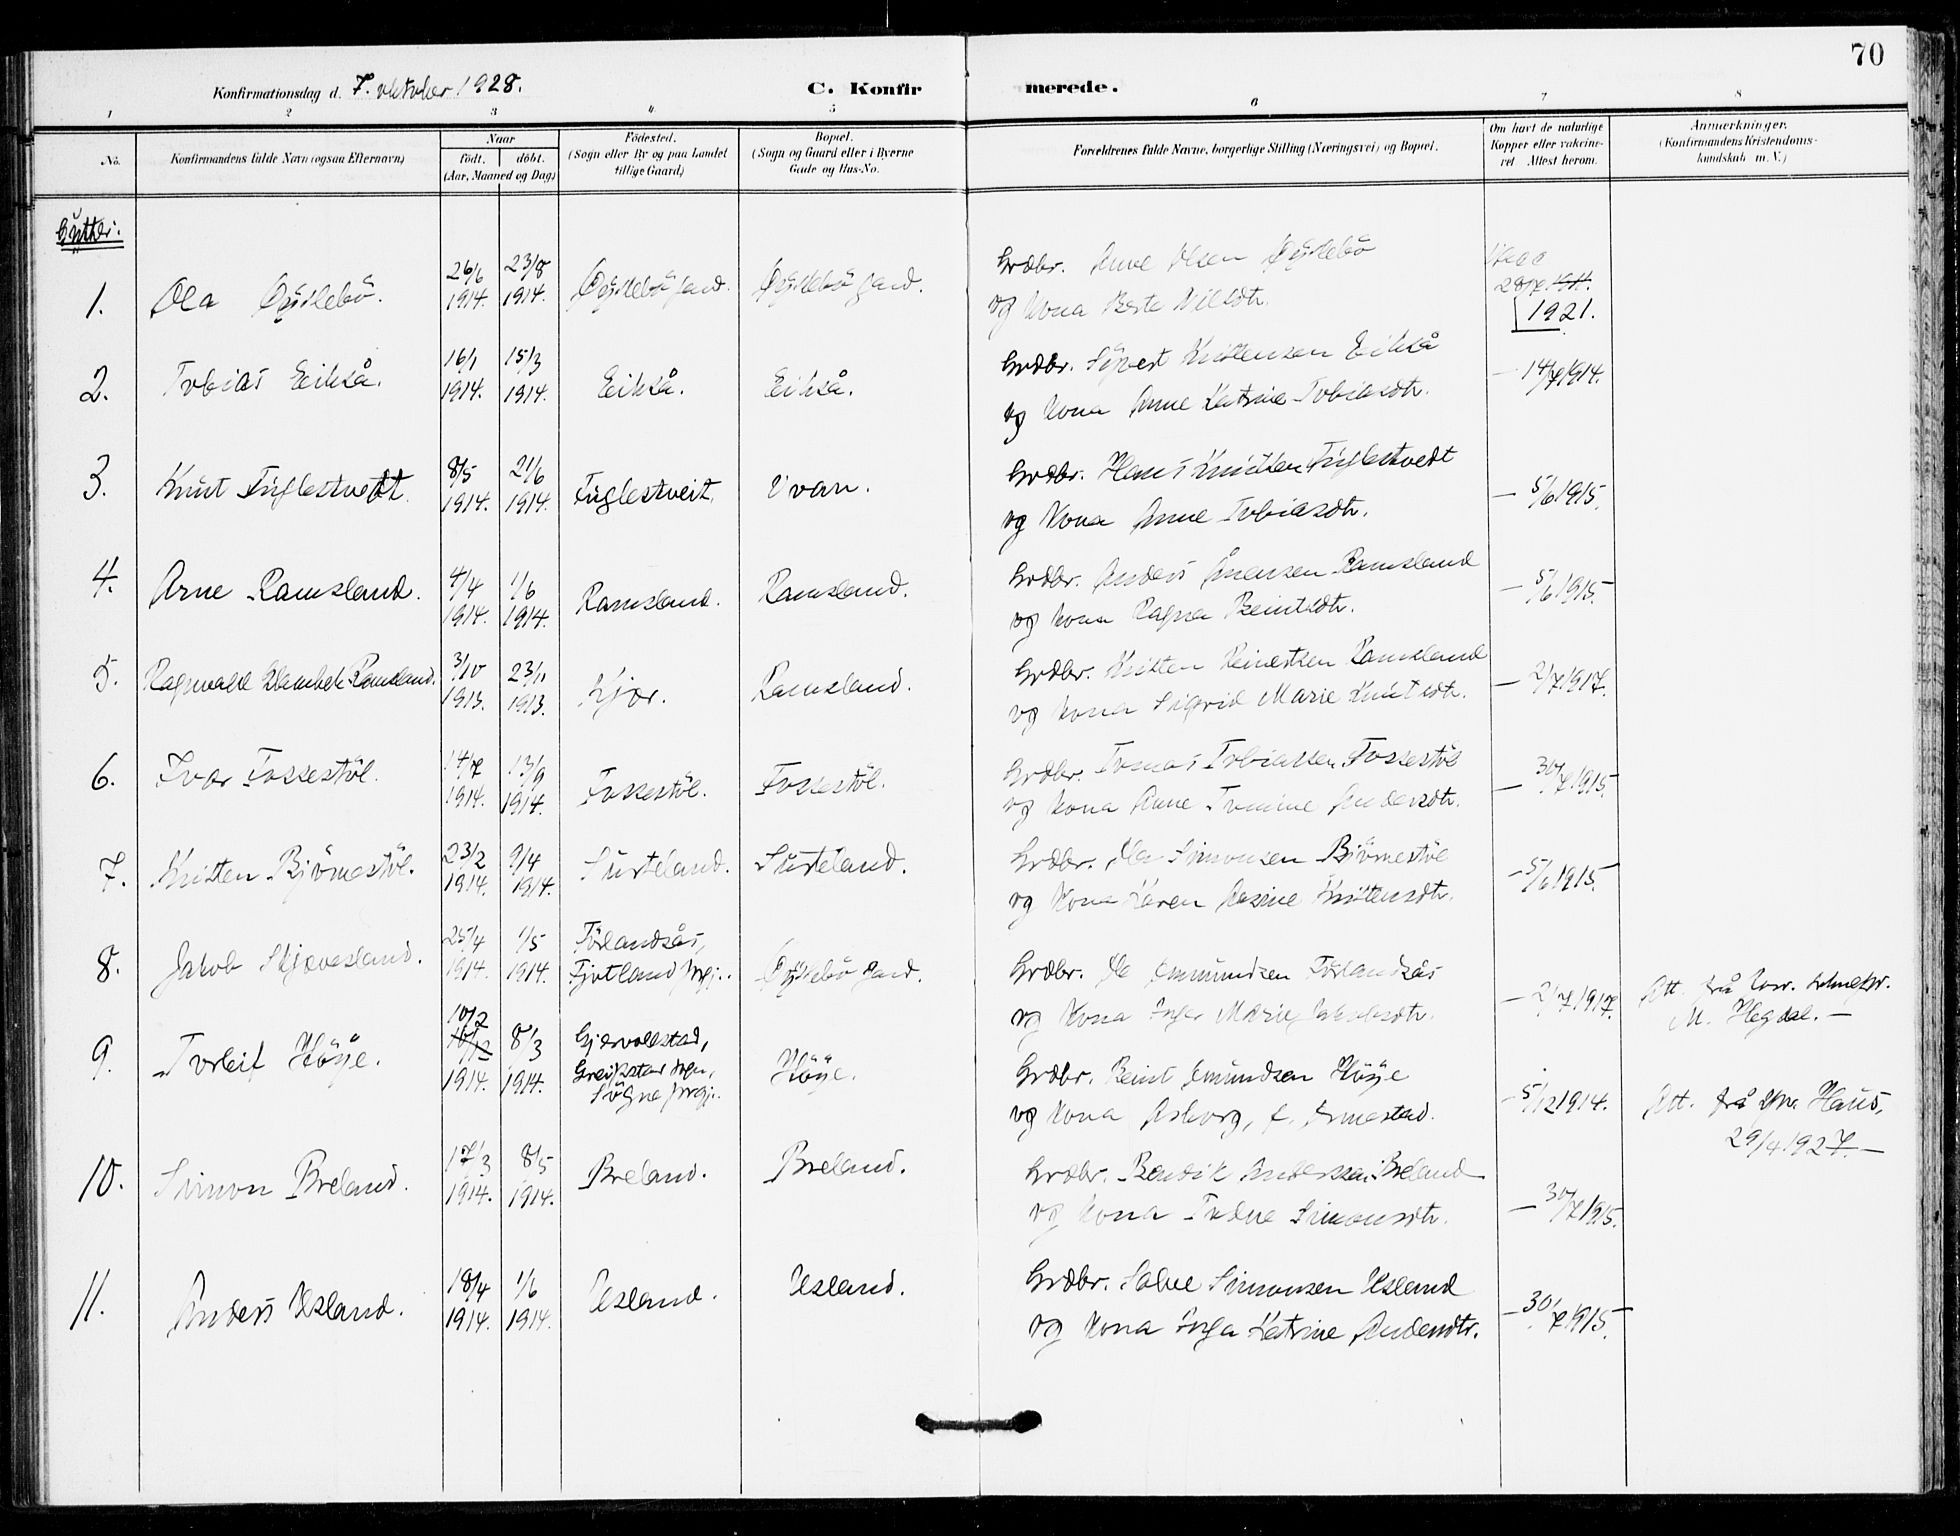 70
Konfirmationsdag d. 7. oktober 1928.
C. Konfirmerede.
1 2 3 4 5 6 7 8
No.
Konfirmandens fulde Navn (ogsaa Efternavn)
Naar
födt. döbt.
(Aar, Maaned og Dag)
Födested.
(Sogn eller By og paa Landet
tillige Gaard)
Bopæl.
(Sogn og Gaard eller i Byerne
Gade og Hus-No.
Forældrenes fulde Navne, borgerlige Stilling (Næringsvei) og Bopæl.
Om havt de naturlige
Kopper eller vakcine-
ret Attest herom.
Anmærkninger.
(Konfirmandens Kristendoms-
kundskab m. V.)
Gutter:
1. Ola Øyslebö. 26/6 1914. 23/8 1914. Øyslebö gard. Øyslebö gard.
Grdbr. Olsen Øyslebö
og kona Berte Nilsdtr.
1921.
2. Tobias Eikså. 16/1 1914. 15/3 1914. Eikså. Eikså.
Grdbr. Sigvert Kristensen Eikså
og kona Anne Katrine Tobiasdtr.
— 14/7 1914.
3. Knut Fuglestvedt. 8/5 1914. 21/6 1914. Fuglestveit. Uvan.
Grdbr. Hans Knutsen Fuglestvedt
og kona Anne Tobiasdtr.
— 5/6 1915.
4. Arne Ramsland. 4/4 1914. 1/6 1914. Ramsland. Ramsland.
Grdbr. Anders Ånensen Ramsland
og kona Ragna Reintsdtr.
— 5/6 1915.
5. Ragnvald Ramsland. 3/10 1913. 23/11 1913. Kjær. Ramsland.
Grdbr. Kristen Reinertsen Ramsland
og kona Sigrid Marie Knutsdtr.
— 2/7 1917.
6. Ivar Fossestöl. 14/7 1914. 13/9 1914. Fossestöl. Fossestöl.
Grdbr. Tomas Tobiassen Fossestöl
og kona Anne Tomine Andersdtr.
— 30/7 1915.
7. Kristen Björnestöl. 23/2 1914. 9/4 1914. Surteland. Surteland.
Grdbr. Ola Simonsen Björnestöl
og kona Karen Rasine Kristensdtr.
— 5/6 1915.
8. Jakob Skjævesland. 25/4 1914. 1/5 1914. Förlandsås, Fjotland prgj. Øyslebö gard.
Grdbr. Ola Omundsen Förlandsås
og kona Inger Marie Jakobsdtr.
— 2/7 1917.
Att. frå
M. Hegdal. —
9. Torleif Höye. 10/2 1914. 8/3 1914. Gjervollstad, Greipstad sogn, Sögne prgj. Höye.
Grdbr. Reint Omundsen Höye
og kona Asborg, f. Ormestad.
— 5/12 1914.
Att. frå Haus,
29/4 1927. —
10. Simon Breland. 17/3 1914. 8/5 1914. Breland. Breland.
Grdbr. Bendik Anderssen Breland
og kona Tordne Simonsdtr.
— 30/7 1915.
11. Anders Usland. 18/4 1914. 1/6 1914. Usland. Usland.
Grdbr. Salve Simonsen Usland
og kona Inga Katrine Andersdtr.
— 30/7 1915.